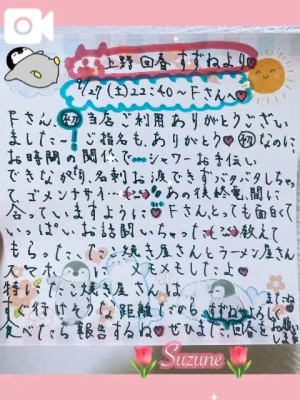 上野回春 すずねより♥
9/27(土)22:40〜Fさんへ♥
Fさん、初当店ご利用ありがとうござい
ました〜!ご指名も、ありがとう♥初なのに、
お時間の関係で…シャワーお手伝い
できなかったり名刺お渡しできずバタバタしちゃっ
てゴメンナサイ…あの後終電、間に
合っていますように♥Fさん、とっても面白くて
いっぱいお話聞いちゃった…教えて
もらった、たこ焼き屋さんとラーメン屋さん
スマホにメモメモしたよ♥
特にたこ焼き屋さんは
すぐ行けそうな距離だから、
食べたら報告するね♥ぜひまた、回春をお願い
します
またね
すずね よろしく
Suzune